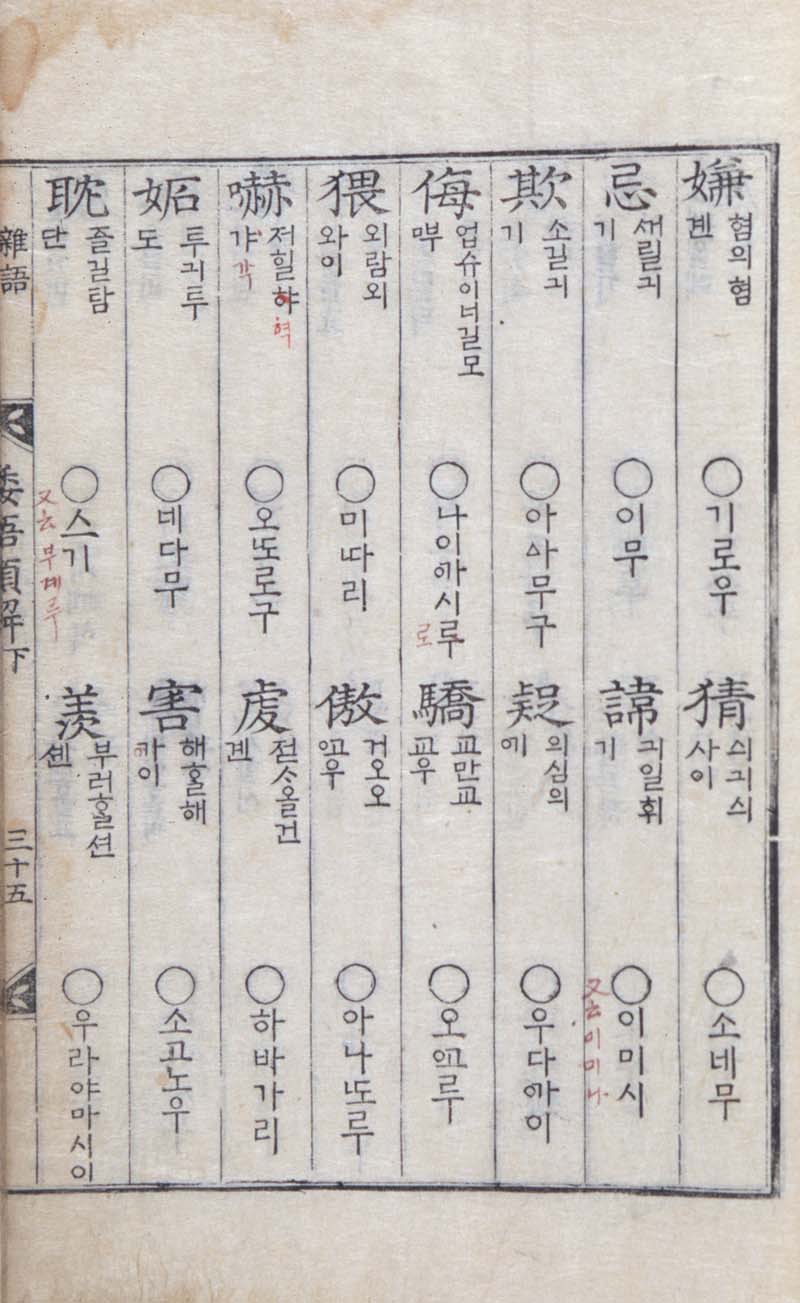 嫌
혐의혐
겐
○기로우
猜
싀긔싀
사이
○소네무
忌
ᄭᅥ릴긔
기
○이무
諱
긔일휘
기
○이미시
又云이미나
欺
소길긔
기
○아ᅀᅡ무구
疑
의심의
○우다ᅁᅡ이
侮
업슈이너길모
ᄜᅮ
○나이ᅁᅡ시루
로
驕
교만교
교우
○오ᅁᅩ루
猥
외람외
와이
○미ᄕᅡ리
傲
거오오
ᅁᅩ우
○아나ᄕᅩ루
嚇
저힐하
혁
갸
각
○오ᄕᅩ로구
虔
겐
○하바가리
妬
투긔투
도
○네다무
害
해ᄒᆞᆯ해
○소고노우
耽
즐길탐
단
○스기
又云
羨
부러ᄒᆞᆯ션
셴
○우라야마시이
雜語
倭語類解下
三十五